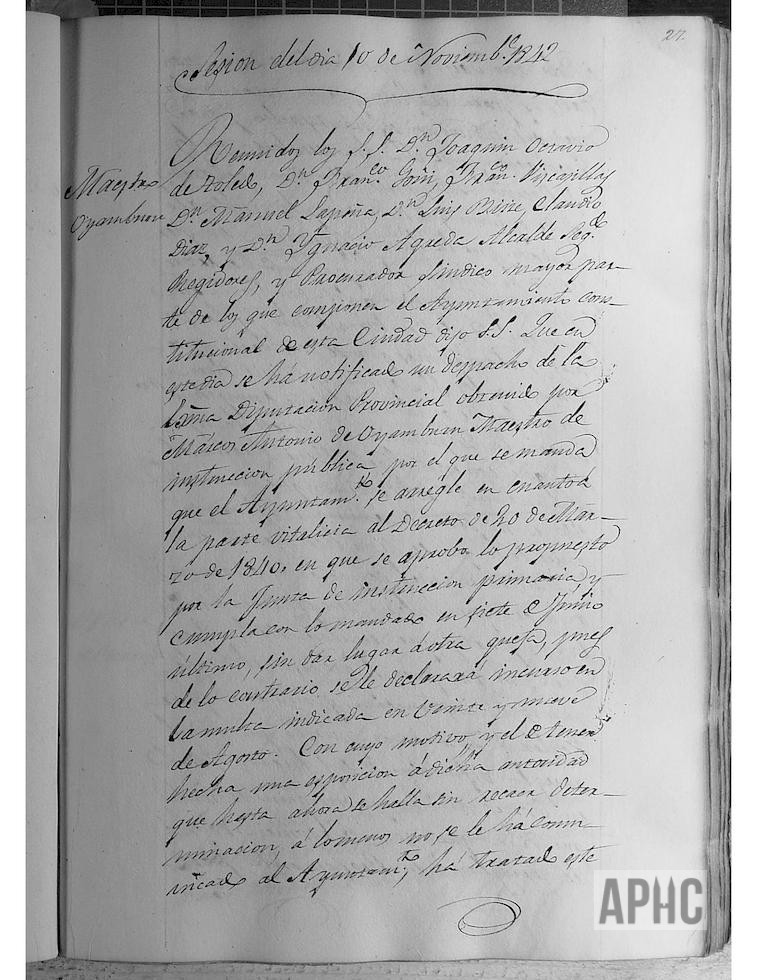 27.
Sesion del dia 10 de Noviemb.e 1842
Maestro
Oyambrun
Reunidos los S.S. D.n Joaquin Octavio
de Toledo, D.n Fran.co Goñi, Fran.co Viscasillas
D.n Manuel Lapeña, D.n Luis Bine, Claudio
Diaz, y D.n Ygnacio Agreda Alcalde Seg.do
Regidores, y Procurador Sindico mayor par-
te de los que componen el Ayuntamiento cons-
titucional de esta Ciudad dijo S.S. Que en
este dia se há notificado un despacho de la
Exma Diputacion Provincial obtenido por
Márcos Antonio de Oyambrun Maestro de
instruccion pública por el que se manda
que el Ayuntam.to se arregle en cuanto á
la parte vitalicia al Decreto de 20 de Mar-
zo de 1840. en que se aprobó lo propuesto
por la Junta de instruccion primaria, y
cumpla con lo mandado en siete de Junio
último, sin dar lugar á otra queja, pues
de lo contrario se le declarará incurso en
la multa indicada en Veinte y nueve
de Agosto. Con cuyo motivo, y el de tener
hecha una esposicion á dicha autoridad
que hasta ahora se halla sin recaer deter-
minacion, á lo menos no se le há comu-
nicado al Ayuntam.to, há tratado este
APHC